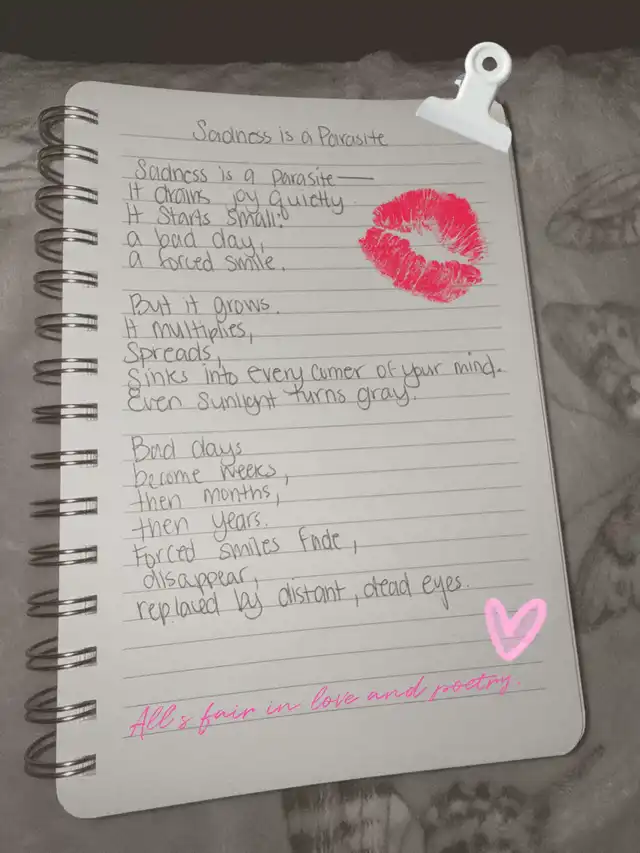 Sadness is a Parasite
Sadness is a parasite—
It drains joy quietly
It starts small:
a bad day,
a forced smile.
But it grows.
It multiplies,
Spreads,
Sinks into every corner of your mind.
Even sunlight turns gray.
Bad days
become weeks,
then months,
then years.
Forced smiles fade,
disappear,
replaced by distant, dead eyes.
All's fair in love and poetry.